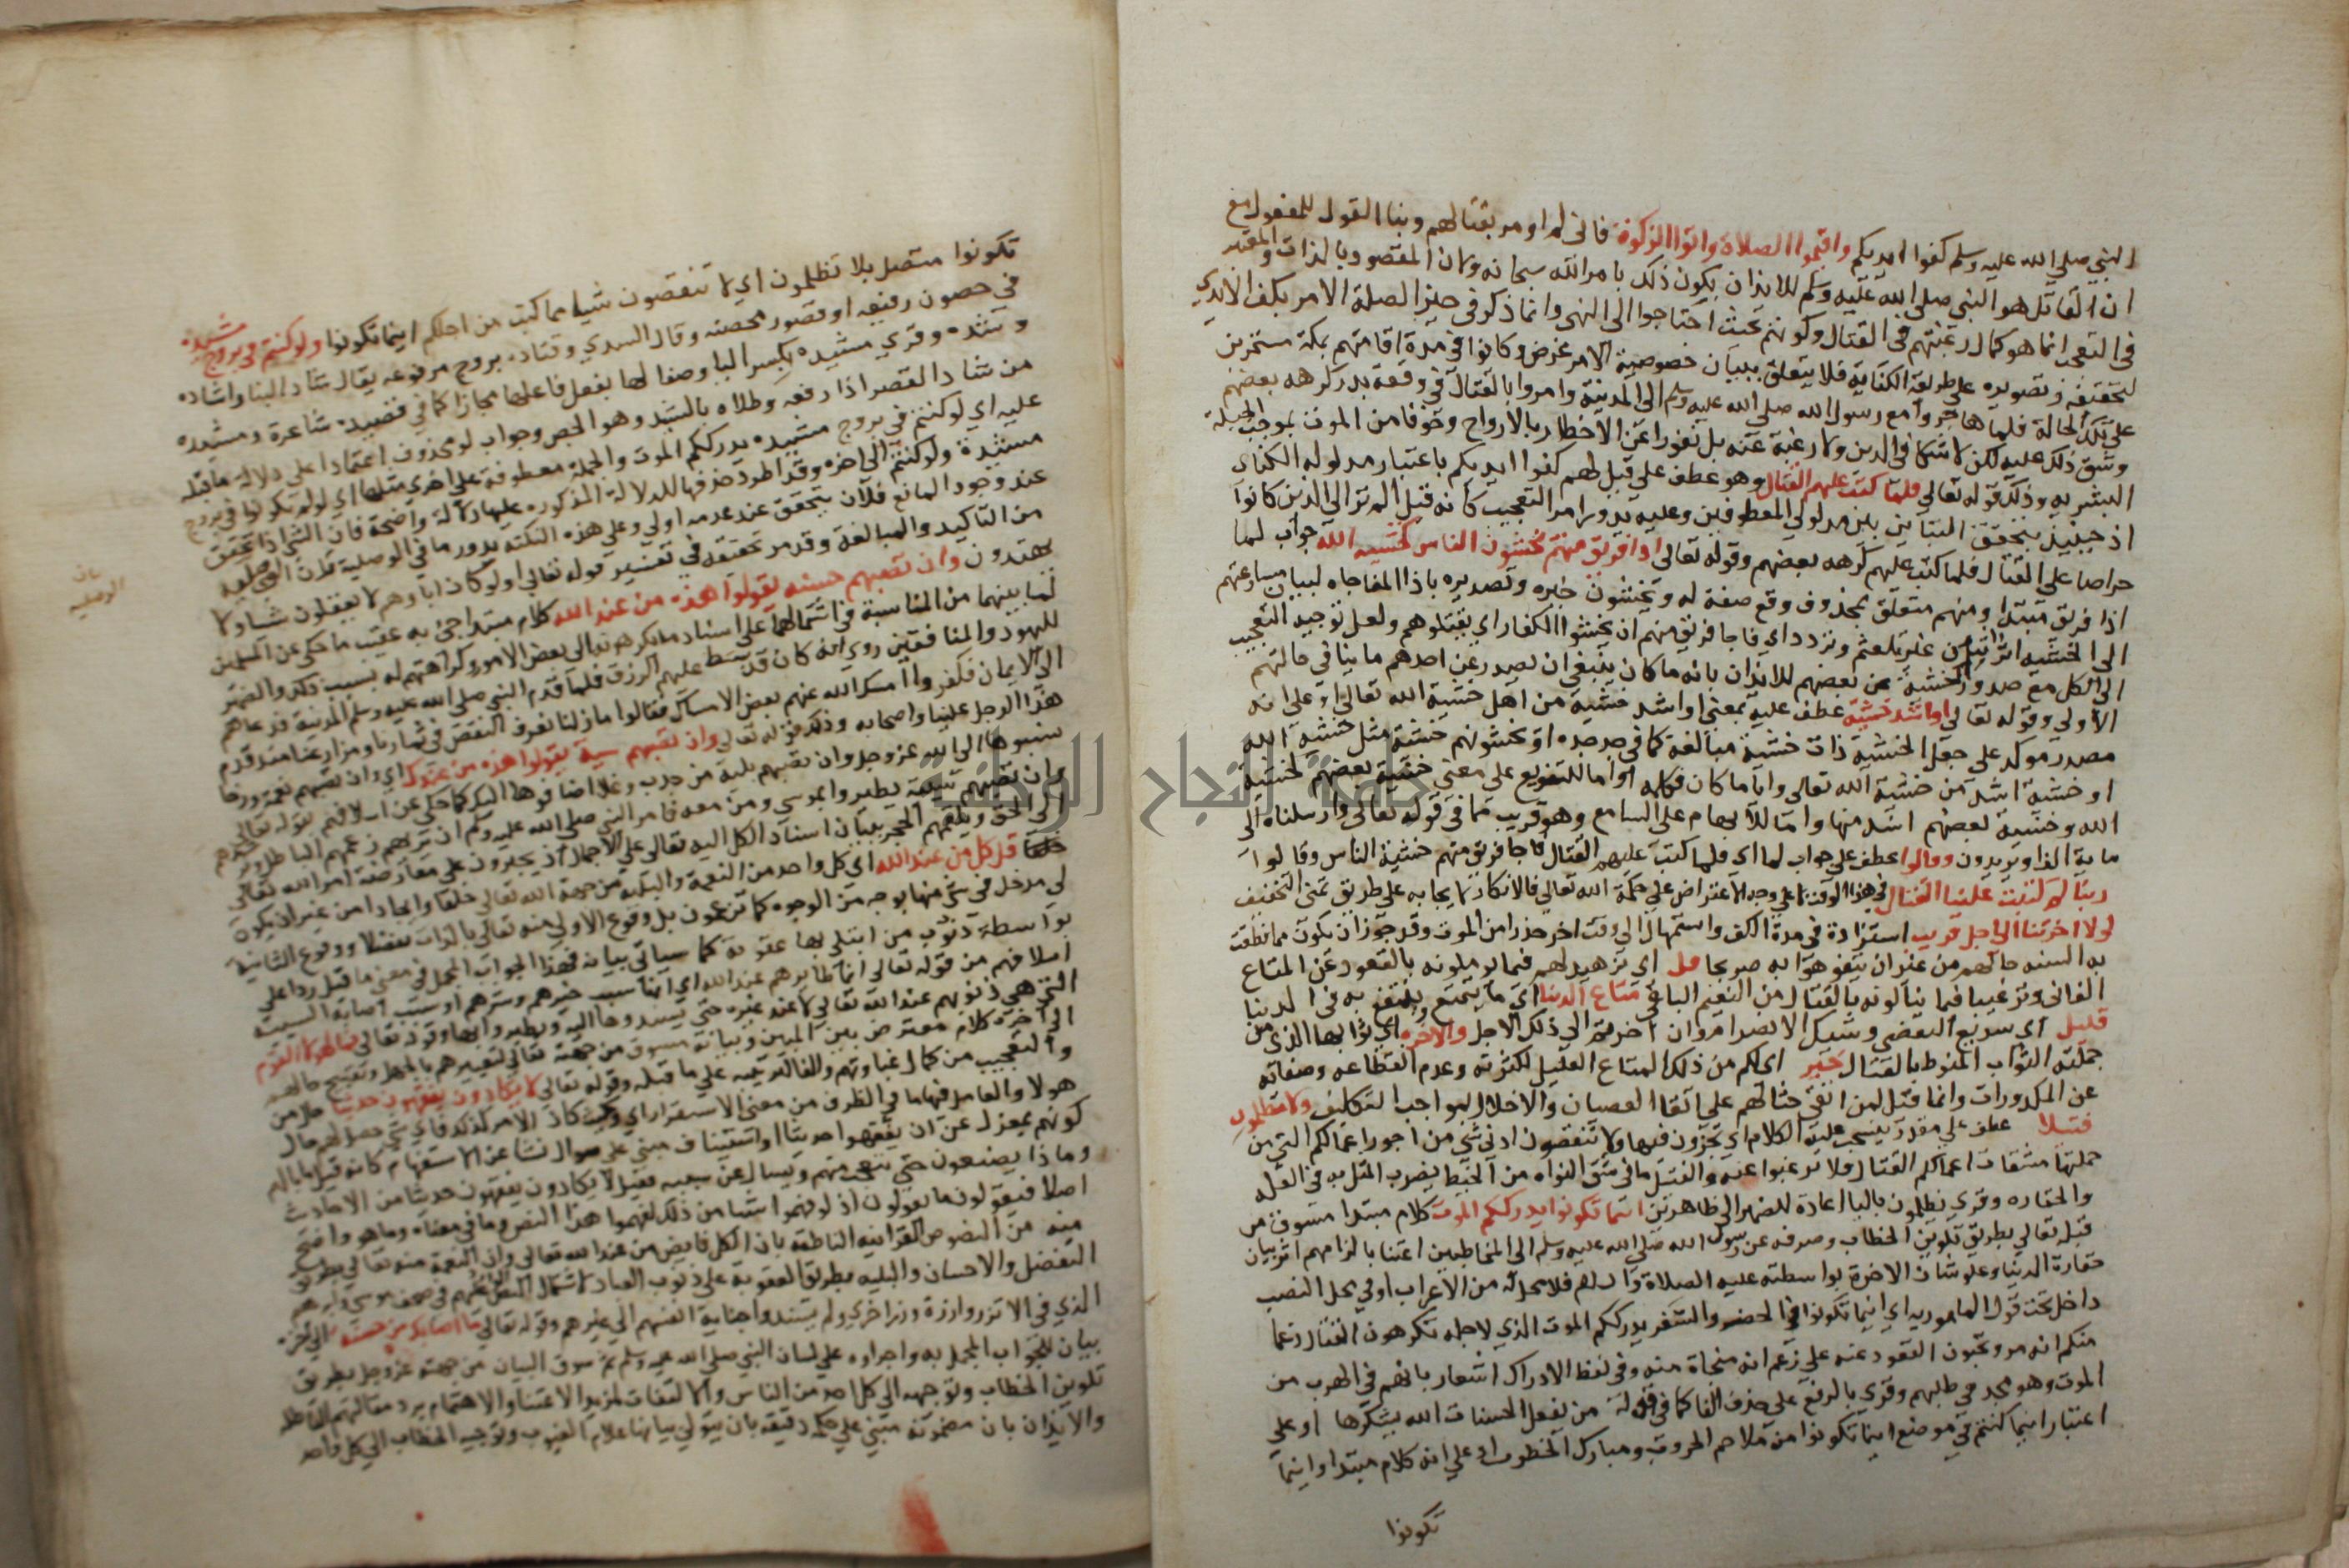 النبي صلى الله عليه وسلم كفوا ايديكم واقيموا الصلاة واتوا الزكوة فاني لم اومر بقتالهم وبنا القول للمفعول مع
ان القائل هو النبي صلى الله عليه وسلم للايذان بكون ذلك بامر الله سبحانه ولان المقصود بالذات والمعتبر
في التعجب انما هو كمال رغبتهم في القتال وكونهم بحيث احتاجوا الى النهي وانما ذكر في حيز الصلة الامر بكف الايدي
لتحقيقه وتصويره على طريقة الكناية فلا يتعلق ببيان خصوصية الامر غرض وكانوا في مدة اقامتهم بمكة مستمرين
على تلك الحالة فلما هاجروا مع رسول الله صلى الله عليه وسلم الى المدينة وامروا بالقتال في وقعة بدر كرهه بعضهم
وشق ذلك عليه لكن لا شكا في الدين ولا رغبة عنه بل نفورا عن الاخطار بالارواح وخوفا من الموت بموجب الجبلة
البشريه وذلك قوله تعالى فلما كتب عليهم القتال وهو عطف على قيل لهم كفوا ايديكم باعتبار مدلوله الكنائي
اذ حينيذ يتحقق التباين بين مدلولي المعطوفين وعليه يدور امر التعجيب كانه قيل الم تر الى الذين كانوا
حراصا على القتال فلما كتب عليهم كرهه بعضهم وقوله تعالى اذا فريق منهم يخشون الناس كخشيه الله جواب لما
اذا فريق مبتدا ومنهم متعلق بمحذوف وقع صفة له ويخشون خبره وتصديره باذا المفاجاه لبيان مسارعتهم
الى الخشيه اثر ذي اثير من غير تلعثم وتردد اي فاجا فريق منهم ان يخشوا الكفار اي يقتلوهم ولعل توجيه التعجيب
الى الكل مع صدور الخشية عن بعضهم للايذان بانه ما كان ينبغي ان يصدر عن احدهم ما ينافي حالتهم
الاولى وقوله تعالى او اشد خشية عطف عليه بمعنى او اشد خشية من اهل خشية الله تعالى او على انه
مصدر موكد على جعل الخشية ذات خشية مبالغة كما في جد جده او يخشونهم خشية مثل خشية الله
او خشية اشد من خشية الله تعالى واياما كان فكلمه او اما للتنويع على معنى خشية بعضهم كخشية
الله وخشية بعضهم اشد منها واما للابهام على السامع وهو قريب مما في قوله تعالى وارسلناه الى
ماية الف او يزيدون وقالوا عطف على جواب لما اي فلما كتب عليهم القتال فاجا فريق منهم خشية الناس وقالوا
ربنا لم كتبت علينا القتال في هذا الوقت لا على وجه الاعتراض على حكمة الله تعالى فالانكار لايجابه على طريق تمني التخفيف
لولا اخرتنا الى اجل قريب استزادة في مدة الكف واستمهال الى وقت اخر حذرا من الموت وقد جوز ان يكون مما نطقت
به السنه حالهم من غير ان يتفوهوا به صريحا قل اي تزهيدا لهم فيما يوملونه بالقعود عن المتاع
الفاني وترغيبا فيما ينالونه بالقتال من النعيم الباقي متاع الدنيا اي ما يتمتع وينتفع به في الدنيا
قليل اي سريع التقضي وشيك الانصرام وان اخرتم الى ذلك الاجل والاخره اي ثوابها الذي من
جملته الثواب المنوط بالقتال خير اي لكم من ذلك المتاع القليل لكثرته وعدم انقطاعه وصفائه
عن المكدورات وانما قيل لمن اتقى حثا لهم على اتقا العصيان والاخلال بمواجب التكليف ولا تظلمون
فتيلا عطف على مقدر ينسحب عليه الكلام اي تجزون فيها ولا تنقصون ادنى شي من اجور اعمالكم التي من
جملتها مشقات اعمالكم القتال فلا ترغبوا عنه والفتيل ما في شق النواه من الخيط يضرب المثل به في القله
والحقاره وقري يظلمون باليا اعادة للضمير الى ظاهر من اينما تكونوا يدرككم الموت كلام مبتدا مسوق من
قبله تعالى بطريق تلوين الخطاب وصرفه عن رسول الله صلى الله عليه وسلم الى المخاطبين اعتنا بالزامهم اثر بيان
حقارة الدنيا وعلو شان الاخرة بواسطته عليه الصلاة والسلام فلا محل له من الاعراب او في محل النصب
داخل تحت قول المامور به اي اينما تكونوا في الحضر والسفر يدرككم الموت الذي لاجله تكرهون القتال زعما
منكم انه من وتحبون القعود عنه على زعم انه منجاة منه وفي لفظ الادراك اشعار بانهم في الهرب من
الموت وهو مجد في طلبهم وقري بالرفع على حذف الفا كما في قوله من يفعل الحسنات الله يشكرها او على
اعتبار اينما كنتم في موضع اينما تكونوا من ملاحم الحروب ومبارك الخطوب او على انه كلام مبتدا واينما
تكونوا
تكونوا متصل بلا تظلمون اي لا تنقصون شيا مما كتب من اجلكم اينما تكونوا ولو كنتم في بروج مشيدة
في حصون رفيعه او قصور محصنه وقال السدي وقتاده بروج مرفوعه يقال شاد البنا واشاده
وشيده وقري مشيده بكسر اليا وصفا لها بفعل فاعلها مجازا كما في قصيده شاعرة ومشيده
من شاد القصر اذا رفعه وطلاه بالشيد وهو الجص وجواب لو محذوف اعتمادا على دلالة ما قبله
عليه اي لو كنتم في بروج مشيده يدرككم الموت والجملة معطوفة على اخرى مثلها اي لو لم تكونوا في بروج
مشيدة ولو كنتم الى اخره وقد اطرد حذفها لدلالة المذكوره عليها دلالة واضحة فان الشي اذا تحقق
عند وجود المانع فلان يتحقق عند عدمه اولى وعلى هذه النكته يدور ما في لو الوصلية
من التاكيد والمبالغة وقد مر تحقيقه في تفسير قوله تعالى اولو كان اباوهم لا يعقلون شيا ولا
يهتدون وان تصبهم حسنه يقولوا هذه من عند الله كلام مبتدا جي به عقيب ما حكي عن المسلمين
لما بينهما من المناسبة في اشتمالهما على اسناد ما يكرهونه الى بعض الامور وكراهتهم له بسبب ذلك والضمير
لليهود والمنافقين روي انه كان قد بسط عليهم الرزق فلما قدم النبي صلى الله عليه وسلم المدينة فدعاهم
الى الايمان فكفروا امسك الله عنهم بعض الامساك فقالوا ما زلنا نعرف النقص في ثمارنا ومزارعنا منذ قدم
هذا الرجل علينا واصحابه وذلك قوله تعالى وان تصبهم سية يقولوا هذه من عندك اي وان تصبهم نعمة ورخا
نسبوها الى الله عز وجل وان تصبهم بلية من جدب وغلا اضافوها اليك كما حكي عن اسلافهم بقوله تعالى
وان تصبهم سيئة يطيروا بموسى ومن معه فامر النبي صلى الله عليه وسلم ان يرد زعمهم الباطل ويرشدهم
الى الحق ويلقمهم الحجر ببيان اسناد الكل اليه تعالى على الاجمال اذ لا يجترون على معارضة امر الله تعالى
قل كل من عند الله اي كل واحد من النعمة والبلية من جهة الله تعالى خلقا وايجادا من غير ان يكون
لي مدخل في شي منها بوجه من الوجوه كما تزعمون بل وقوع الاولى منه تعالى بالذات تفضلا ووقوع الثانية
بواسطة ذنوب من ابتلي بها عقوبة كما سياتي بيانه فهذا الجواب المجمل في معنى ما قيل ردا على
اسلافهم من قوله تعالى انما طايرهم عند الله اي انما سبب خيرهم وشرهم او سبب اصابة السيئة
التي هي ذنوبهم عند الله تعالى لا عند غيره حتى يسندوها اليه ويطيروا بها وقوله تعالى فما لهولا القوم
الى اخره كلام معترض بين المبين وبيانه مسوق من جهته تعالى لتعييرهم بالجهل وتقبيح حالهم
والتعجيب من كمال غباوتهم والفا لترتيبه على ما قبله وقوله تعالى لا يكادون يفقهون حديثا حال من
هولا والعامل فيها ما في الظرف من معنى الاستقرار اي وحيث كان الامر كذلك فاي شي حصل لهم حال
كونهم بمعزل عن ان يفقهوا حديثا او استيناف مبني على سوال نشا عن الاستفهام كانه قيل ما بالهم
وماذا يصنعون حتى يتعجب منهم ويسال عن سببه فقيل لا يكادون يفقهون حديثا من الاحاديث
اصلا فيقولون ما يقولون اذ لو فهموا شيا من ذلك لفهموا هذا النص وما في معناه وما هو واضح
منه من النصوص القرانيه الناطقه بان الكل فايض من عند الله تعالى وان النعمة منه تعالى بطريق
التفضل والاحسان والبليه بطريق العقوبة على ذنوب العباد لا سيما النص عليهم في صحف موسى وابرهيم
الذي في الا تزر وازرة وزر اخرى ولم يسندوا جناية انفسهم الى غيرهم وقوله تعالى ما اصابك من حسنه الى اخره
بيان للجواب المجمل به واجراوه على لسان النبي صلى الله عليه وسلم ثم سوق البيان من جهته عز وجل بطريق
تلوين الخطاب وتوجيهه الى كل احد من الناس والالتفات لمزيد الاعتنا والاهتمام برد مقالتهم الباطله
والايذان بان مضمونه مبني على حكمه دقيقه بان يتولى بيانها علام الغيوب وتوجيه الخطاب الى كل واحد
بيان
الوصليه
جامعة النجاح الوطنية